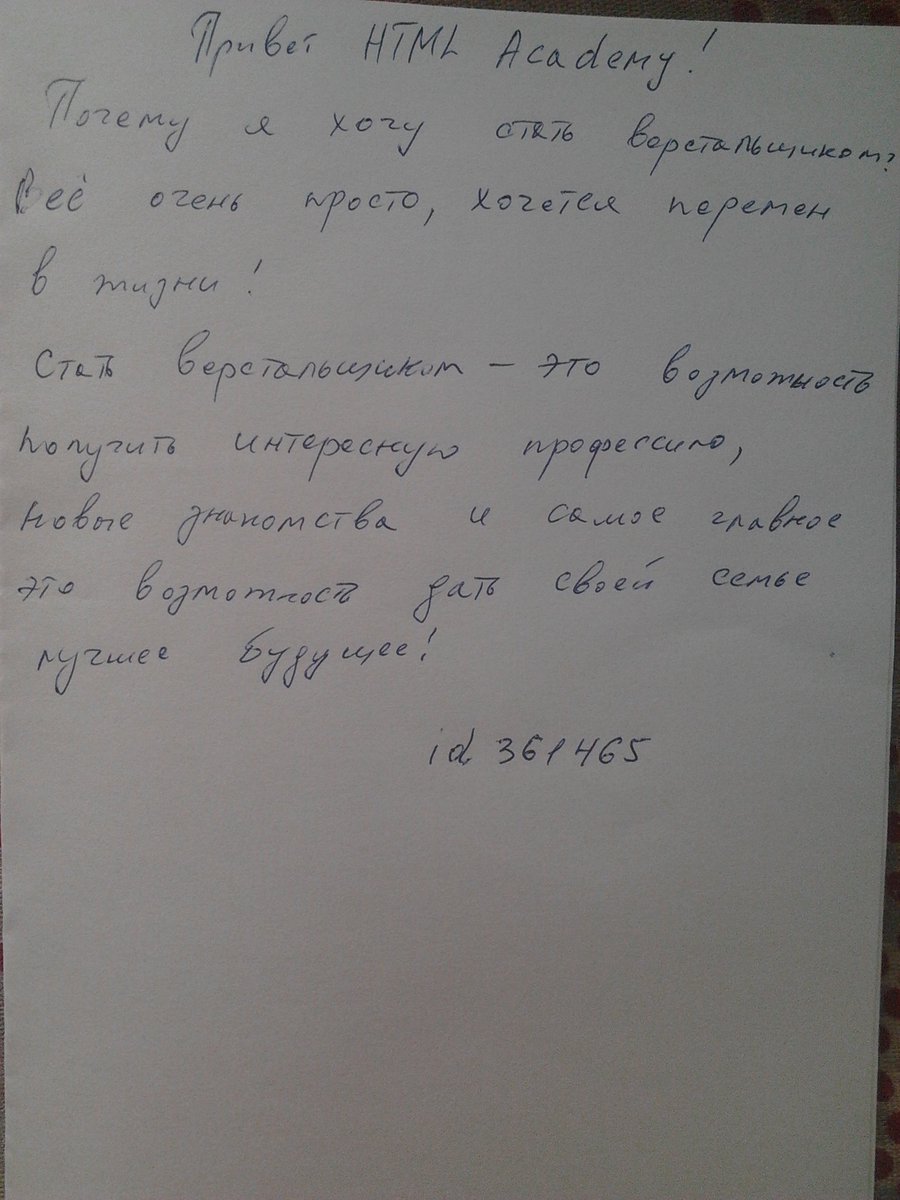 Привет HTML Academy!
Почему я хочу стать верстальщиком?
Всё очень просто, хочется перемен
в жизни!
Стать верстальщиком – это возможность
получить интересную профессию,
новые знакомства и самое главное
это возможность дать своей семье
лучшее будущее!
id 361465